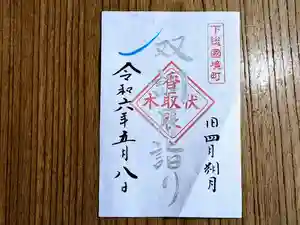 下総國境町
旧四月朔月
双詣り
香取
伏木
令和六年五月八日